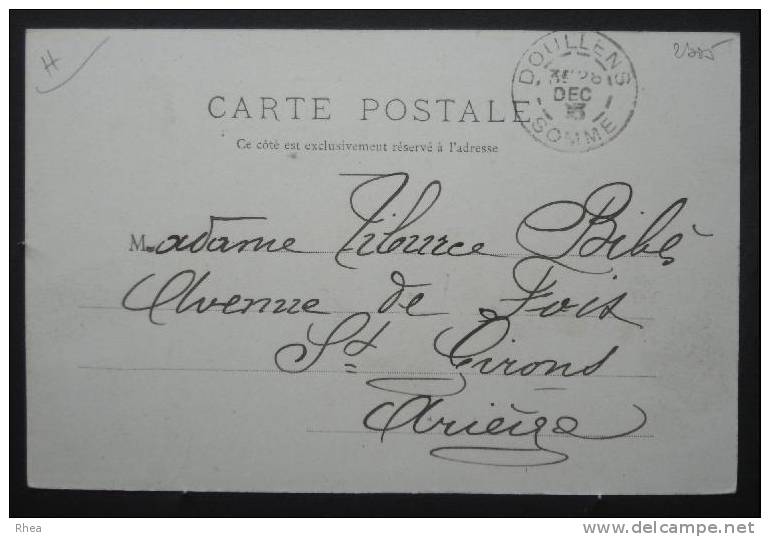 H
2335
DOULLENS
DEC
SOMME
CARTE POSTALE
Ce côté est exclusivement réservé à l'adresse
Madame Tiburce Bibé
Avenue de Foix
St Girons
Ariège
Rhea
www.delcampe.net